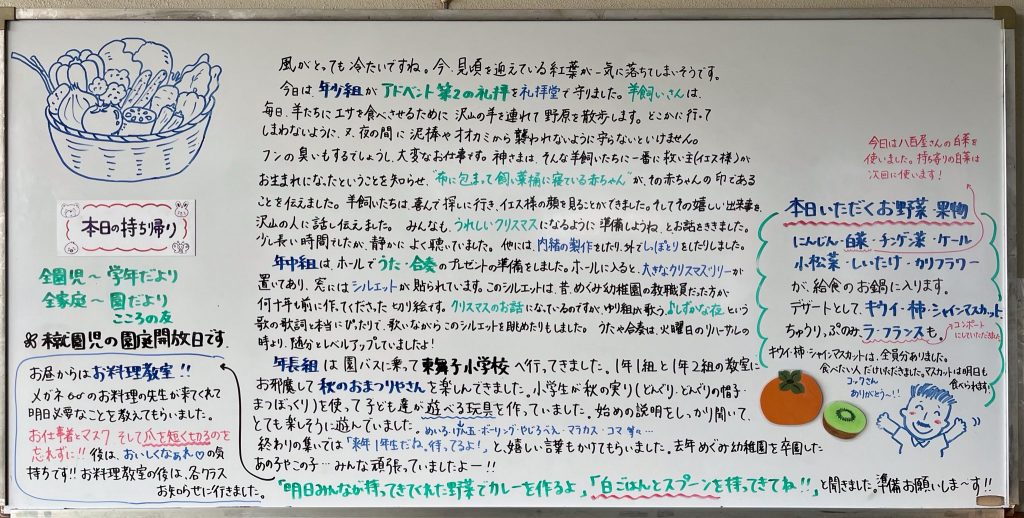 風がとっても冷たいですね。今、見頃を迎えている紅葉が一気に落ちてしまいそうです。
今日は、年少組がアドベント第2の礼拝を礼拝堂で守りました。羊飼いさんは、
毎日、羊たちにエサを食べさせるために沢山の羊を連れて野原を散歩します。どこかに行って
しまわないように、又、夜の間に泥棒やオオカミから襲われないように守らないといけません。
フンの臭いもするでしょうし、大変なお仕事です。神さまは、そんな羊飼いたちに一番に救い主(イエス様)が
お生まれになったということを知らせ、"布に包まって飼い葉桶に寝ている赤ちゃん"が、その赤ちゃんの印である
ことを伝えました。羊飼いたちは、喜んで探しに行き、イエス様の顔を見ることができました。そしてその嬉しい出来事を、
沢山の人に話し伝えました。みんなも、うれしいクリスマスになるように準備しようね、とお話をききました。
少し長い時間でしたが、静かによく聴いていました。他には、内緒の製作をしたり、外でしっぽとりをしたりしました。
年中組は、ホールでうた・合奏のプレゼントの準備をしました。ホールに入ると、大きなクリスマスツリーが
置いてあり、窓にはシルエットが貼られています。このシルエットは、昔、めぐみ幼稚園の教職員だった方が
何十年も前に作ってくださった切り絵です。クリスマスのお話になっているのですが、ゆり組が歌う♪しずかな夜♪という
歌の歌詞と本当にぴったりで、歌いながらこのシルエットを眺めたりもしました。うたや合奏は、火曜日のリハーサルの
時より、随分とレベルアップしていましたよ!
年長組は園バスに乗って東舞子小学校へ行ってきました。1年1組と1年2組の教室に
お邪魔して秋のおまつりやさんを楽しんできました。小学生が秋の実り(どんぐり、どんぐりの帽子・
まつぼっくり)を使って子ども達が遊べる玩具を作っていました。始めの説明をしっかり聞いて、
とても楽しそうに遊んでいました。めいろ・けん玉・ボーリング・やじろべえ・マラカス・コマ
終わりの集いでは「来年1年生だね、待ってるよ!」と、嬉しい言葉もかけてもらいました。去年めぐみ幼稚園を卒園した
あの子やこの子…みんな頑張っていましたよー!!
本日の持ち帰り
全園児〜学年だより
全家庭〜園だより
こころの友
未就園児の園庭開放日です。
お昼からはお料理教室!!
メガネのお料理の先生が来てくれて
明日必要なことを教えてもらいました。
お仕事着とマスク そして爪を短く切るのを
忘れずに!!後は、おいしくなぁれ♡の気
持ちです!!お料理教室の後は、各クラス
お知らせに行きました。
「明日みんなが持ってきてくれた野菜でカレーを作るよ」「白ごはんとスプーンを持ってきてね!!」と聞きました。準備お願いしま〜す!!
今日は八百屋さんの白菜を
使いました。持ち寄りの白菜は
次回に使います!
本日いただくお野菜・果物
にんじん・白菜・チンゲン菜・ケール
小松菜・しいたけ・カリフラワー
が、給食のお鍋に入ります。
デザートとして、キウイ・柿・シャインマスカット
ちゅうりっぷのみラ・フランスも。
コンポート
にしていただきました
キウイ・柿・シャインマスカットは、全員分ありました。
食べたい人だけいただきました。マスカットは明日も
食べられます。
コックさん
ありがとう〜!!